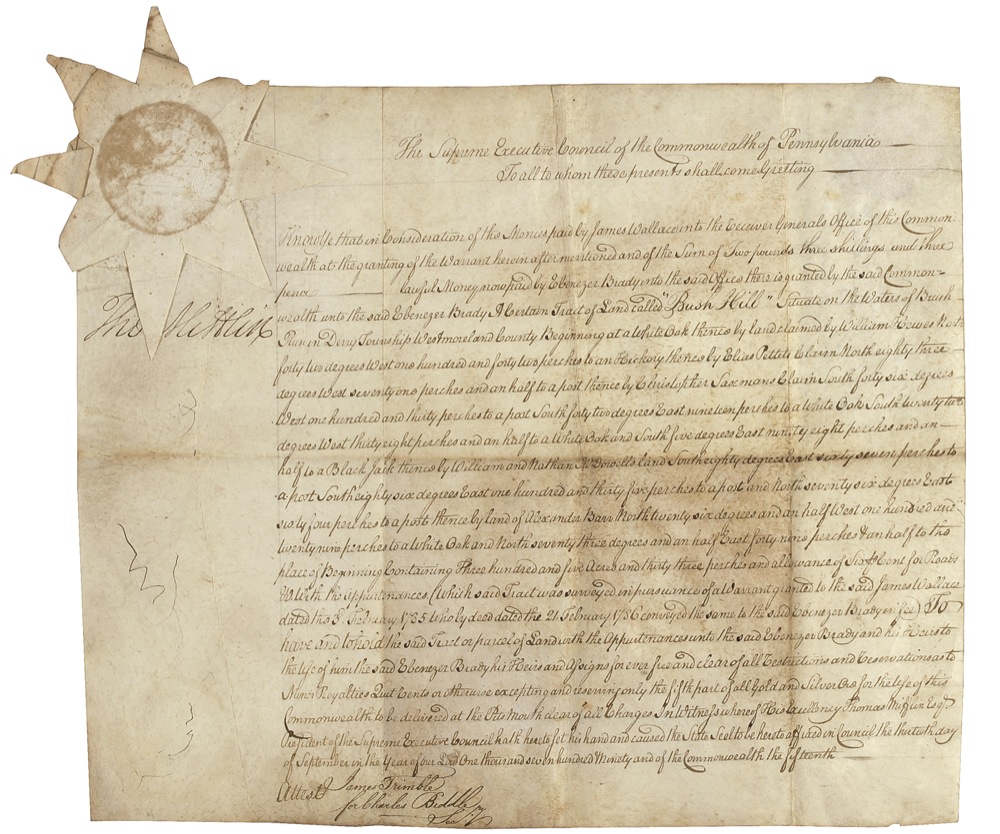 The Supreme Executive Council of the Commonwealth of Pennsylvania
To all to whom these presents shall come Greeting
Know Ye that in Consideration of the Monies paid by James Wallace into the Receiver Generals Office of this Common-
wealth at the granting of the Warrant herein after mentioned and of the Sum of Two pounds three shillings and three
pence lawful Money now paid by Ebenezer Brady into the said Office there is granted by the said Common-
wealth unto the said Ebenezer Brady A Certain Tract of Land called "Bush Hill" Situate on the Waters of Brush
Run in Derry Township Westmoreland County Beginning at a White Oak thence by land claimed by William Hewes North
forty two degrees West one hundred and forty two perches to an Hickory thence by Elias Pellets Claim North eighty three
degrees West seventy one perches and an half to a post thence by Christopher Saxmans Claim South forty six degrees
West one hundred and thirty perches to a post South forty two degrees East nineteen perches to a White Oak South twenty two
degrees West thirty eight perches and an half to a White Oak and South five degrees East ninety eight perches and an
half to a Black Jack thence by William and Nathan McDowells land South eighty degrees East sixty seven perches to
a post South eighty six degrees East one hundred and thirty five perches to a post and North seventy six degrees East
sixty four perches to a post thence by land of Alexander Barr North twenty six degrees and an half West one hundred and
twenty nine perches to a White Oak and North seventy three degrees and an half East forty nine perches & an half to the
place of Beginning Containing Three hundred and five Acres and thirty three perches and allowance of Six ₱ Cent for Roads
&c With the Appurtenances. (Which said Tract was surveyed in pursuance of a Warrant granted to the said James Wallace
dated the February 1785 who by deed dated the 21 February 1786 conveyed the same to the said Ebenezer Brady in fee) To
have and to hold the said Tract or parcel of Land with the Appurtenances unto the said Ebenezer Brady and his Heirs to
the Use of him the said Ebenezer Brady his Heirs and Assigns for ever free and clear of all Restrictions and Reservations as to
Mines Royalties Quit Rents or otherwise excepting and reserving only the fifth part of all Gold and Silver Ore for the Use of this
Commonwealth to be delivered at the Pits Mouth clear of all Charges In Witness whereof His Excellency Thomas Mifflin Esqr.
President of the Supreme Executive Council hath hereto set his hand and caused the State Seal to be hereto affixed in Council the thirtieth day
of September in the Year of our Lord One thousand seven hundred & Ninety and of the Commonwealth the fifteenth
Tho Mifflin
Attest
James Trimble
for Charles Biddle
Secy